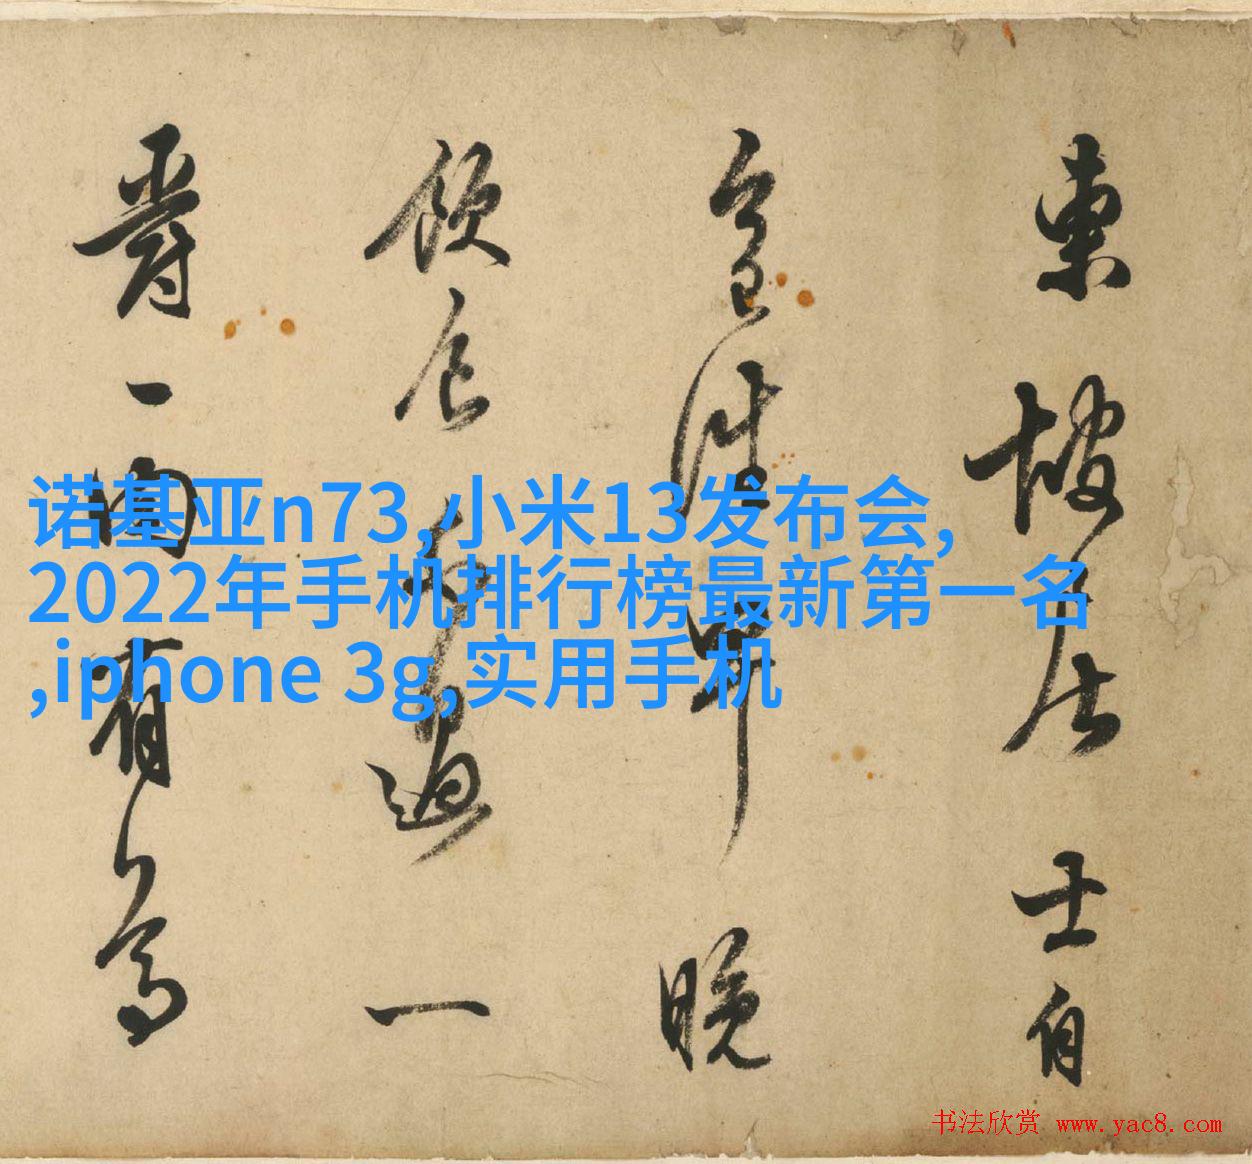 诺基亚n73,小米13发布会,
2022年手机排行榜最新第一名
,iphone 3g,实用手机
東坡居士自
今日往早晚
飲食不過一
爵一肉有
书法欣赏 www.yac8.com